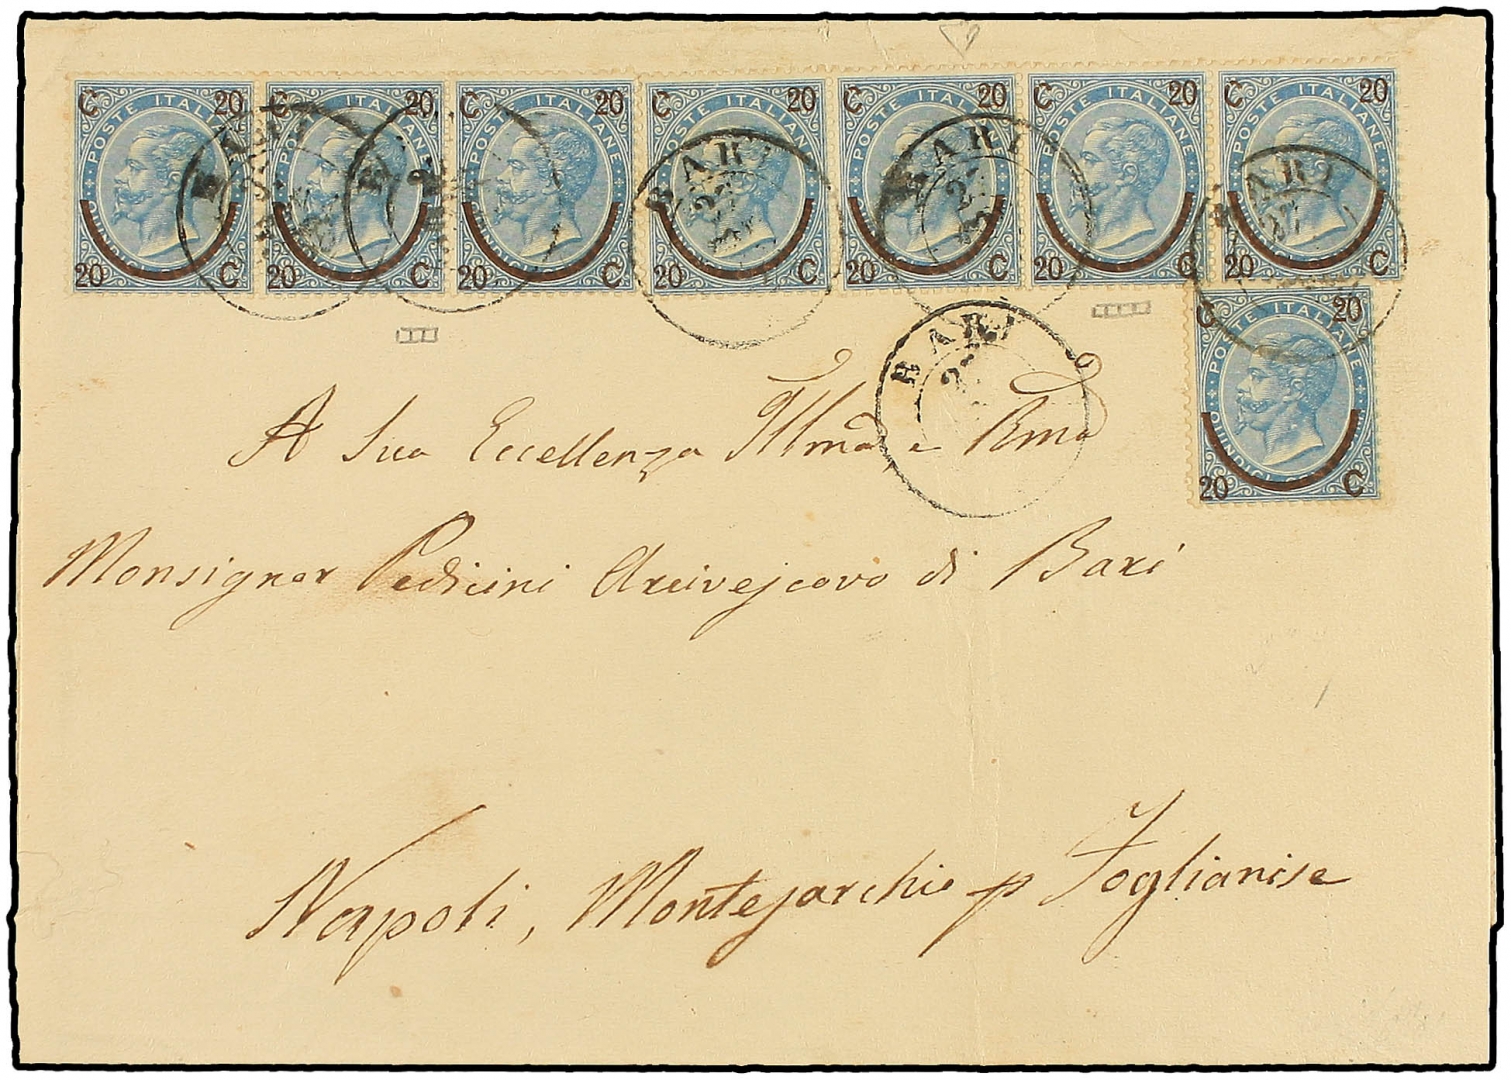 C 20 C 20 C 20 C 20 C 20 C 20 C 20
POSTE ITALIANE POSTE ITALIANE POSTE ITALIANE POSTE ITALIANE POSTE ITALIANE POSTE ITALIANE POSTE ITALIANE
BARI BARI BARI BARI BARI
20 C 20 C 20 C 20 C 20 C 20 C 20 C
C 20
POSTE ITALIANE
QUINDICI
20 C
BARI
A Sua Eccellenza Illma e Rma
Monsignor Pedicini Arcivescovo di Bari
Napoli, Montesarchio p Foglianise